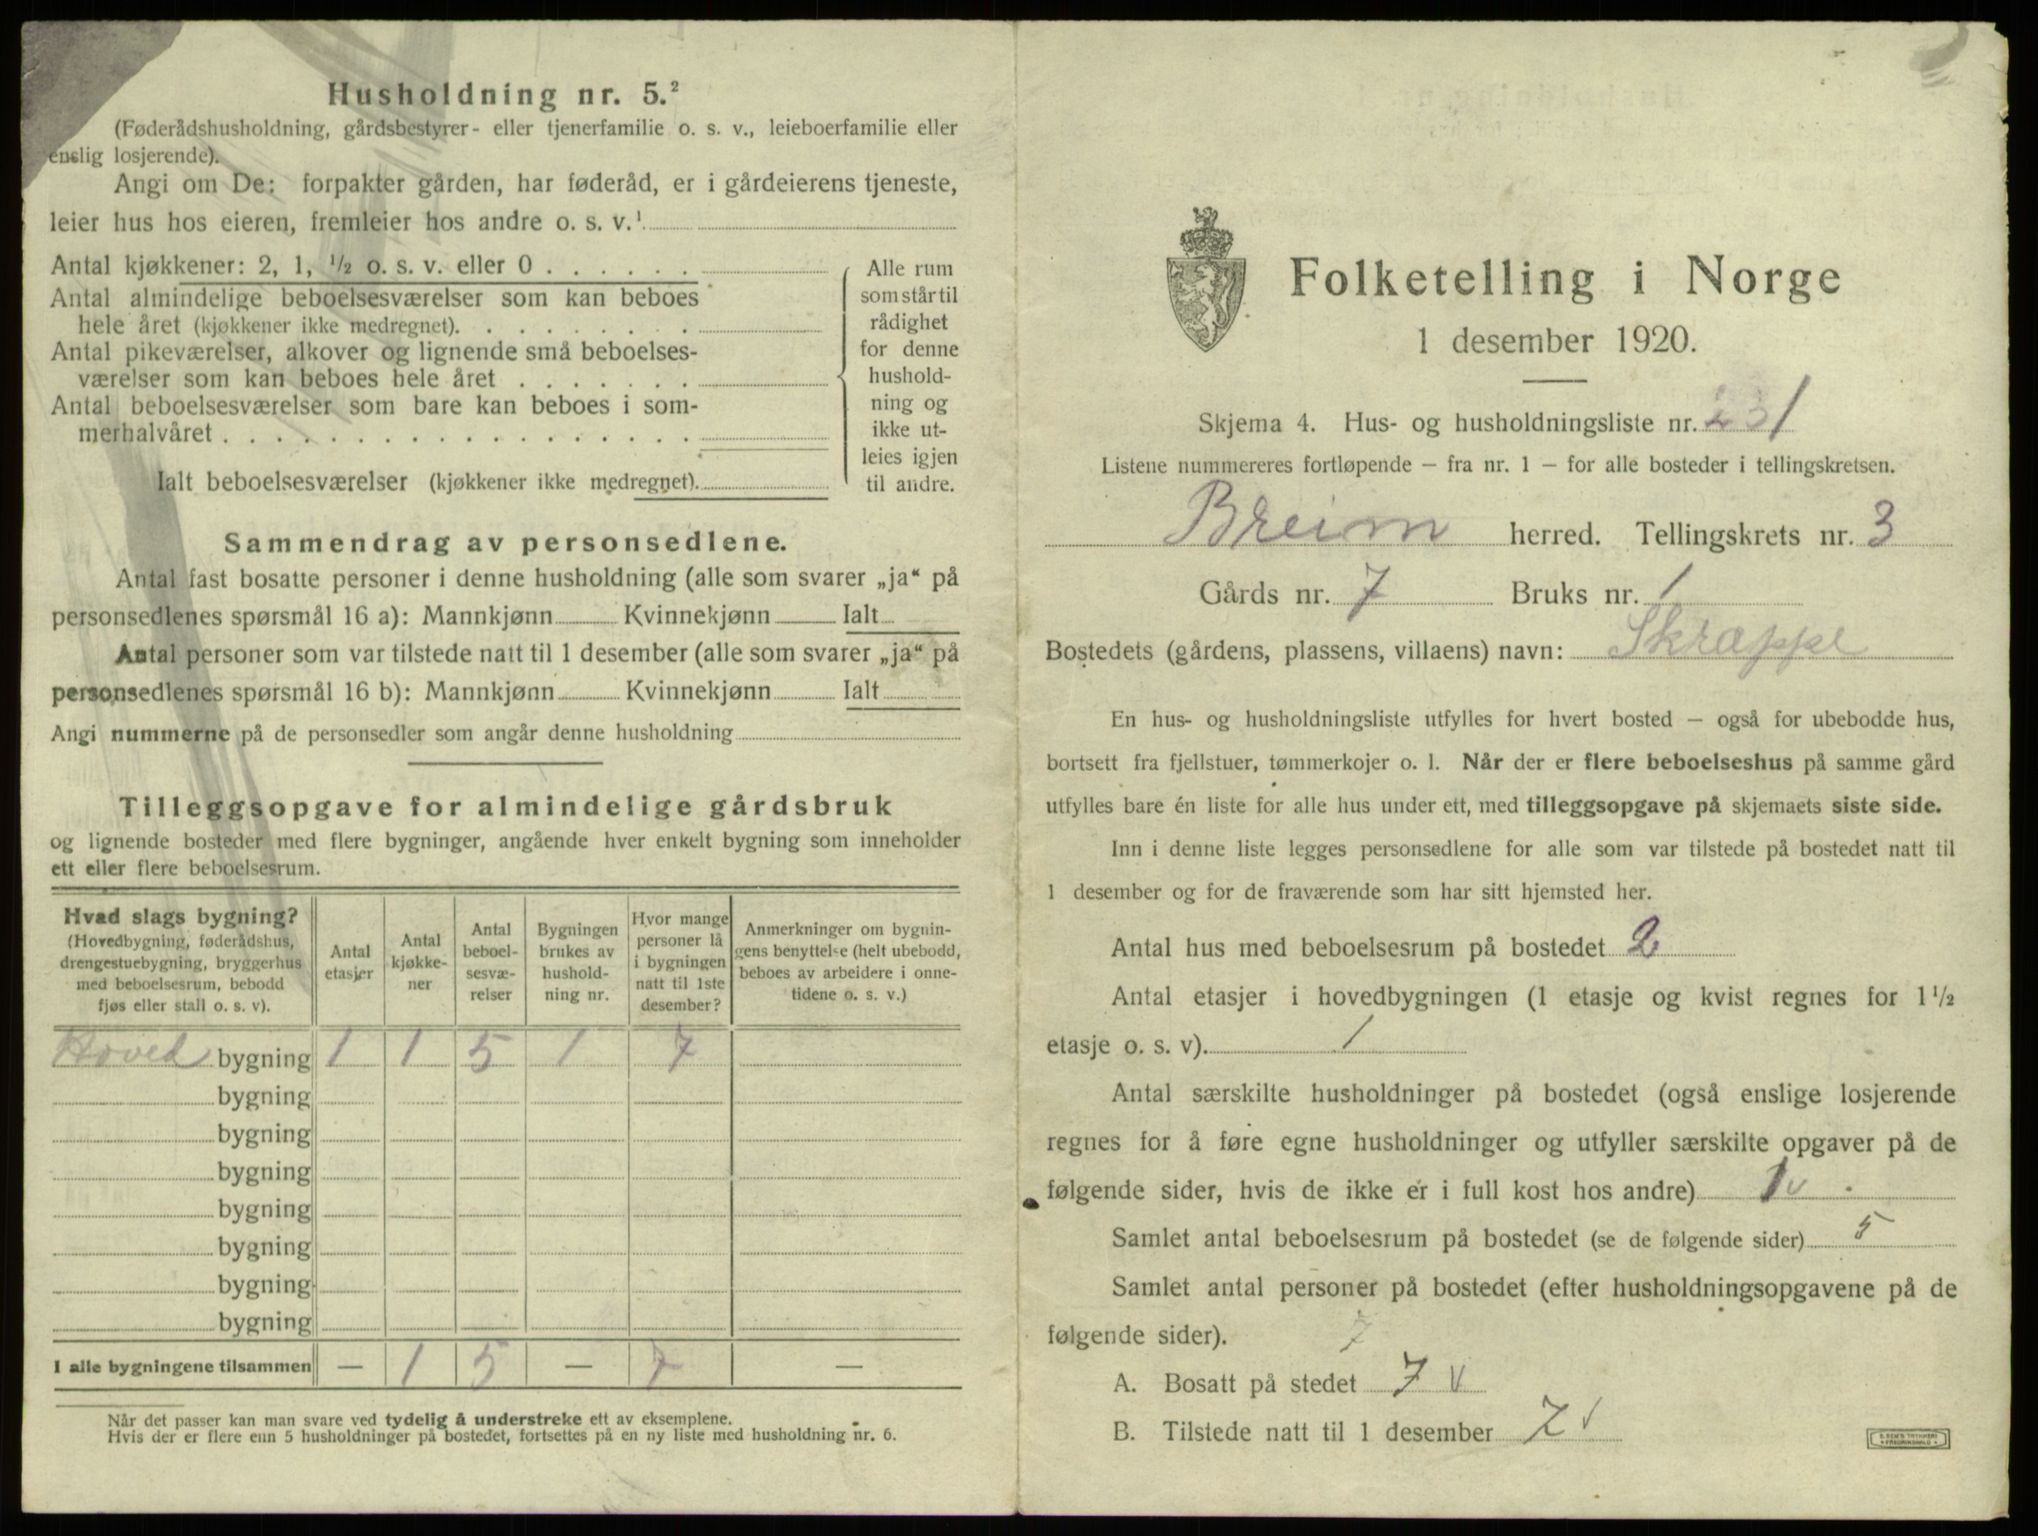 Husholdning nr. 5.²
(Føderådshusholdning, gårdsbestyrer- eller tjenerfamilie o. s. v., leieboerfamilie eller
enslig losjerende).
Angi om De: forpakter gården, har føderåd, er i gårdeierens tjeneste,
leier hus hos eieren, fremleier hos andre o. s. v.¹
Antal kjøkkener: 2, 1, ½ o. s. v. eller 0 . . . . . .
Antal almindelige beboelsesværelser som kan beboes
hele året (kjøkkener ikke medregnet). . . . . . . . .
Antal pikeværelser, alkover og lignende små beboelses-
værelser som kan beboes hele året . . . . . . .
Antal beboelsesværelser som bare kan beboes i som-
merhalvåret . . . . . . . . . . . . . . . . . .
Ialt beboelsesværelser (kjøkkener ikke medregnet).
Alle rum
som står til
rådighet
for denne
hushold-
ning og
ikke ut-
leies igjen
til andre.
Sammendrag av personsedlene.
Antal fast bosatte personer i denne husholdning (alle som svarer „ja“ på
personsedlenes spørsmål 16 a): Mannkjønn Kvinnekjønn Ialt
Antal personer som var tilstede natt til 1 desember (alle som svarer „ja“ på
personsedlenes spørsmål 16 b): Mannkjønn Kvinnekjønn Ialt
Angi nummerne på de personsedler som angår denne husholdning
Tilleggsopgave for almindelige gårdsbruk
og lignende bosteder med flere bygninger, angående hver enkelt bygning som inneholder
ett eller flere beboelsesrum.
Hvad slags bygning?
(Hovedbygning, føderådshus,
drengestuebygning, bryggerhus
med beboelsesrum, bebodd
fjøs eller stall o. s. v).
Antal
etasjer
Antal
kjøkke-
ner
Antal
beboel-
sesvæ-
relser
Bygningen
brukes av
hushold-
ning nr.
Hvor mange
personer lå
i bygningen
natt til 1ste
desember?
Anmerkninger om bygnin-
gens benyttelse (helt ubebodd,
beboes av arbeidere i onne-
tidene o. s. v.)
Hoved bygning 1 1 5 1 7
bygning
bygning
bygning
bygning
bygning
bygning
bygning
I alle bygningene tilsammen — 1 5 — 7 —
Når det passer kan man svare ved tydelig å understreke ett av eksemplene.
Hvis der er flere enn 5 husholdninger på bostedet, fortsettes på en ny liste med husholdning nr. 6.
Folketelling i Norge
1 desember 1920.
Skjema 4. Hus- og husholdningsliste nr. 231
Listene nummereres fortløpende – fra nr. 1 – for alle bosteder i tellingskretsen.
Breim herred. Tellingskrets nr. 3
Gårds nr. 7 Bruks nr. 1
Bostedets (gårdens, plassens, villaens) navn: Skrappe
En hus- og husholdningsliste utfylles for hvert bosted – også for ubebodde hus,
bortsett fra fjellstuer, tømmerkojer o. l. Når der er flere beboelseshus på samme gård
utfylles bare én liste for alle hus under ett, med tilleggsopgave på skjemaets siste side.
Inn i denne liste legges personsedlene for alle som var tilstede på bostedet natt til
1 desember og for de fraværende som har sitt hjemsted her.
Antal hus med beboelsesrum på bostedet 2
Antal etasjer i hovedbygningen (1 etasje og kvist regnes for 1½
etasje o. s. v). 1
Antal særskilte husholdninger på bostedet (også enslige losjerende
regnes for å føre egne husholdninger og utfyller særskilte opgaver på de
følgende sider, hvis de ikke er i full kost hos andre) 1 v
Samlet antal beboelsesrum på bostedet (se de følgende sider) 5
Samlet antal personer på bostedet (efter husholdningsopgavene på de
følgende sider). 7
A. Bosatt på stedet 7 v
B. Tilstede natt til 1 desember 7 v